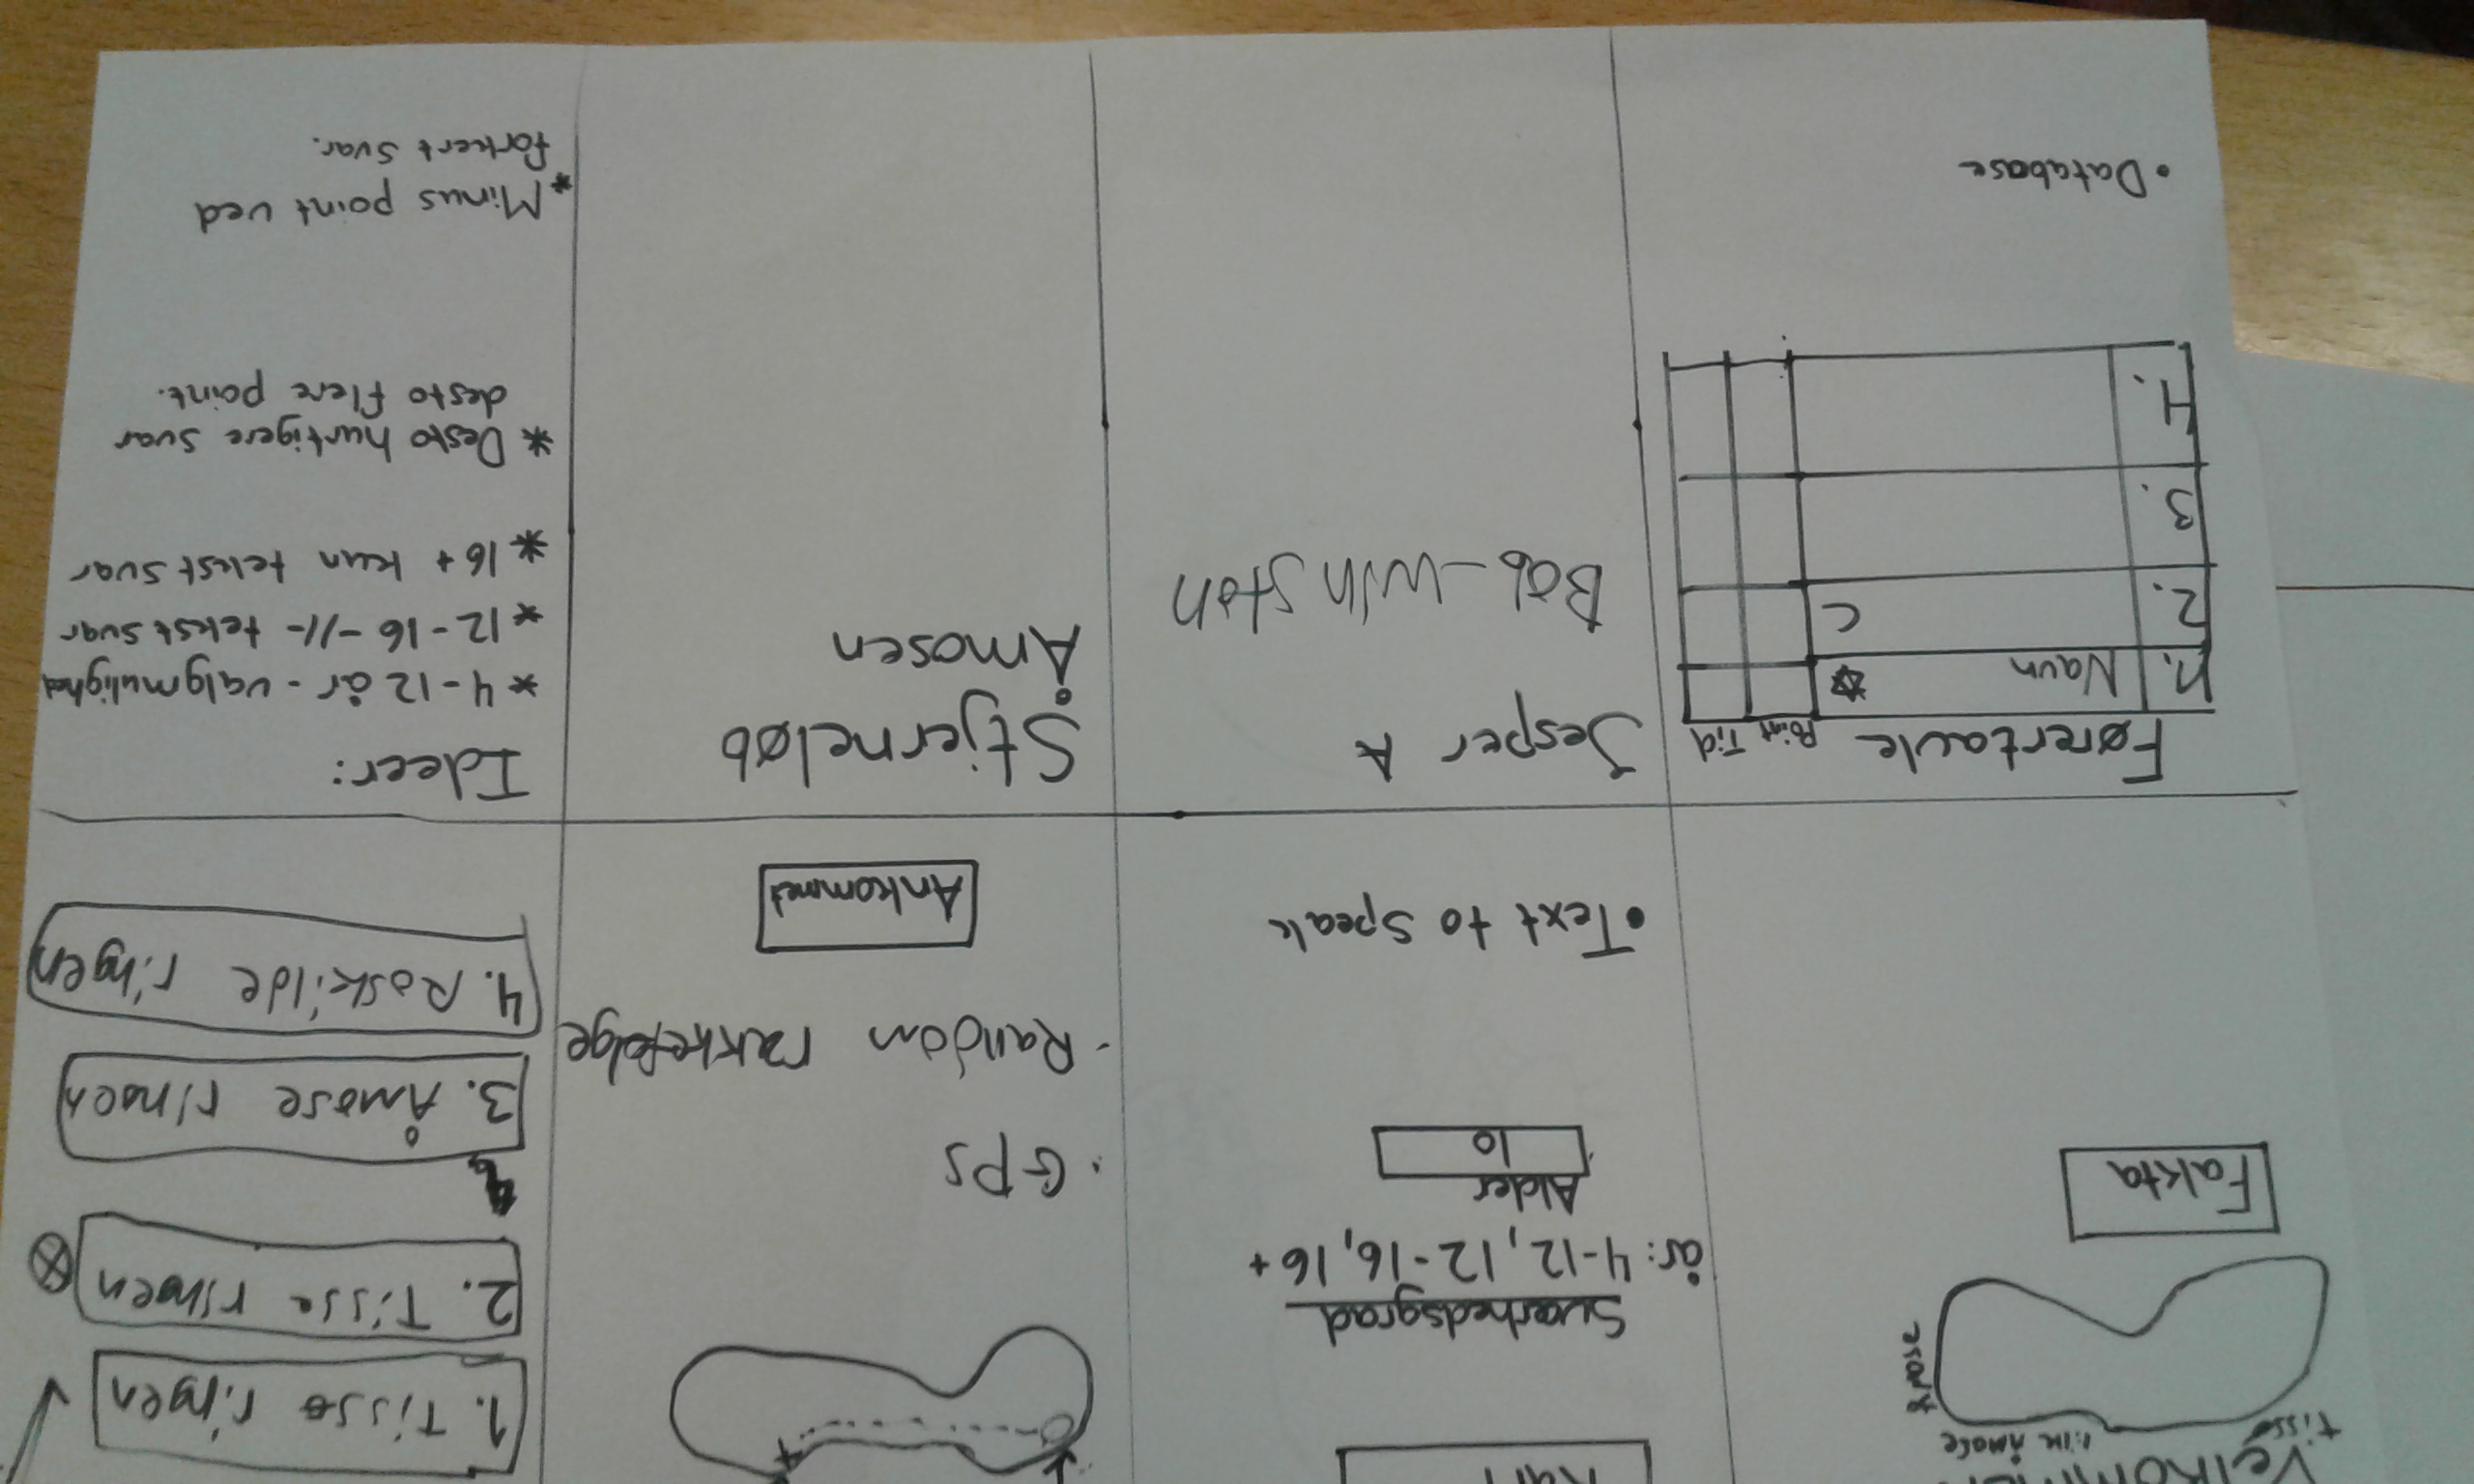 Velkommen
Tissø
lille Åmose
Åmose
Fakta
Kort
Sværhedsgrad
år: 4-12, 12-16, 16+
Alder
10
• Text to speak
• GPS
- Random rækkefølge
Ankommet
1. Tissø ringen
2. Tissø ringen
3. Åmose ringen
4. Roskilde ringen
Førertavle Point Tid
1. Navn
2. C
3.
4.
• Database
Jesper A
Bob_winston
Stjerneløb
Åmosen
Ideer:
* 4-12 år - valgmulighed
* 12-16 -//- tekst svar
* 16+ kun tekst svar
* Desto hurtigere svar
desto flere point.
* Minus point ved
forkert svar.